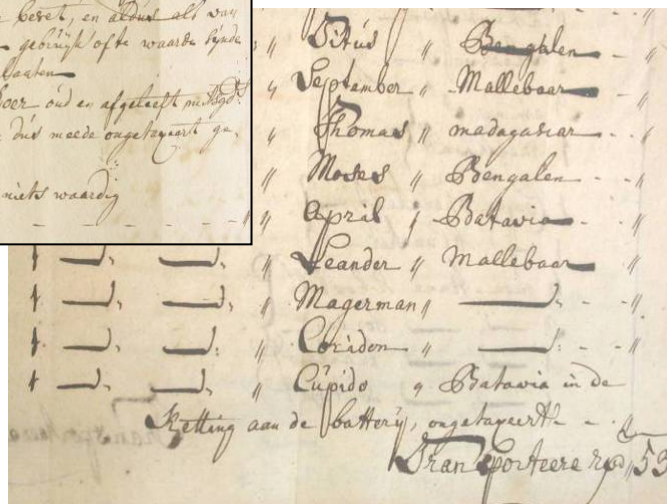 beset, en aldus als van
gebruijk ofte waarde sijnde
laaten
oud en afgeleeft
dus meede ongetaxeert ge
niets waardig
" Titus " Bengalen - "
" September " Mallebaar - "
" Thomas " madagascar - - "
" Moses " Bengalen - - "
" April " Batavia - - "
" Leander " Mallebaar "
" Magerman " - - "
" Coridon " - - "
" Cupido " Batavia in de
Ketting aan de battery, ongetaxeert - - "
Transporteere rxds 53